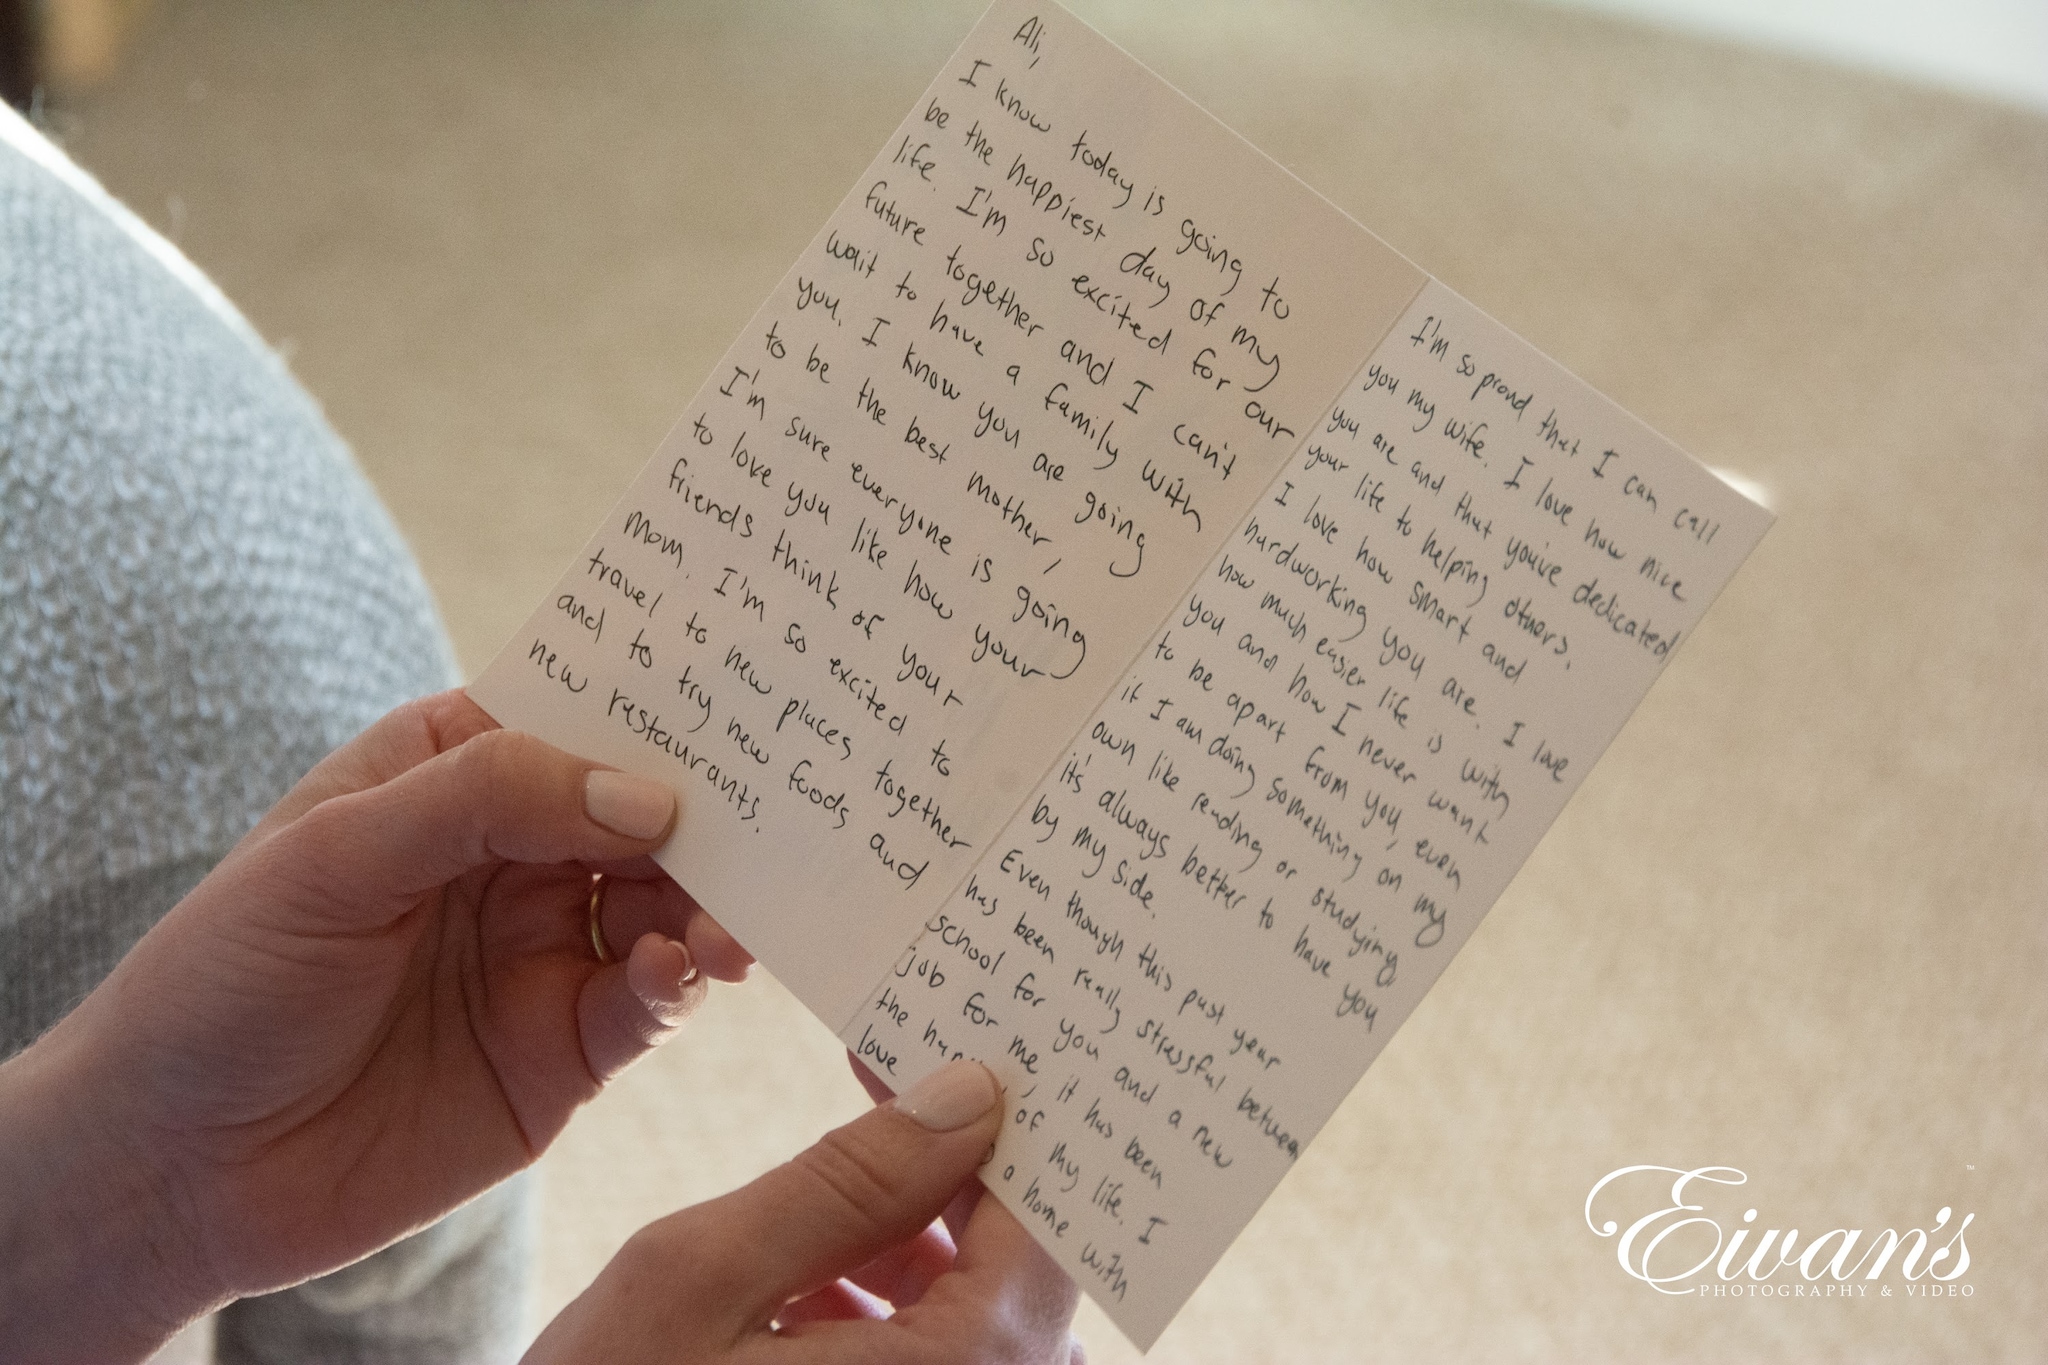 Ali,
I know today is going to
be the happiest day of my
life. I'm so excited for our
future together and I can't
wait to have a family with
you. I know you are going
to be the best mother,
I'm sure everyone is going
to love you like how your
friends think of your
mom. I'm so excited to
travel to new places together
and to try new foods and
new restaurants.
I'm so proud that I can call
you my wife. I love how nice
you are and that you've dedicated
your life to helping others.
I love how smart and
hardworking you are. I love
how much easier life is with
you and how I never want
to be apart from you, even
if I am doing something on my
own like reading or studying,
it's always better to have you
by my side.
Even though this past year
has been really stressful between
school for you and a new
job for me, it has been
the of my life. I
love a home with
Eivan's
PHOTOGRAPHY & VIDEO
™